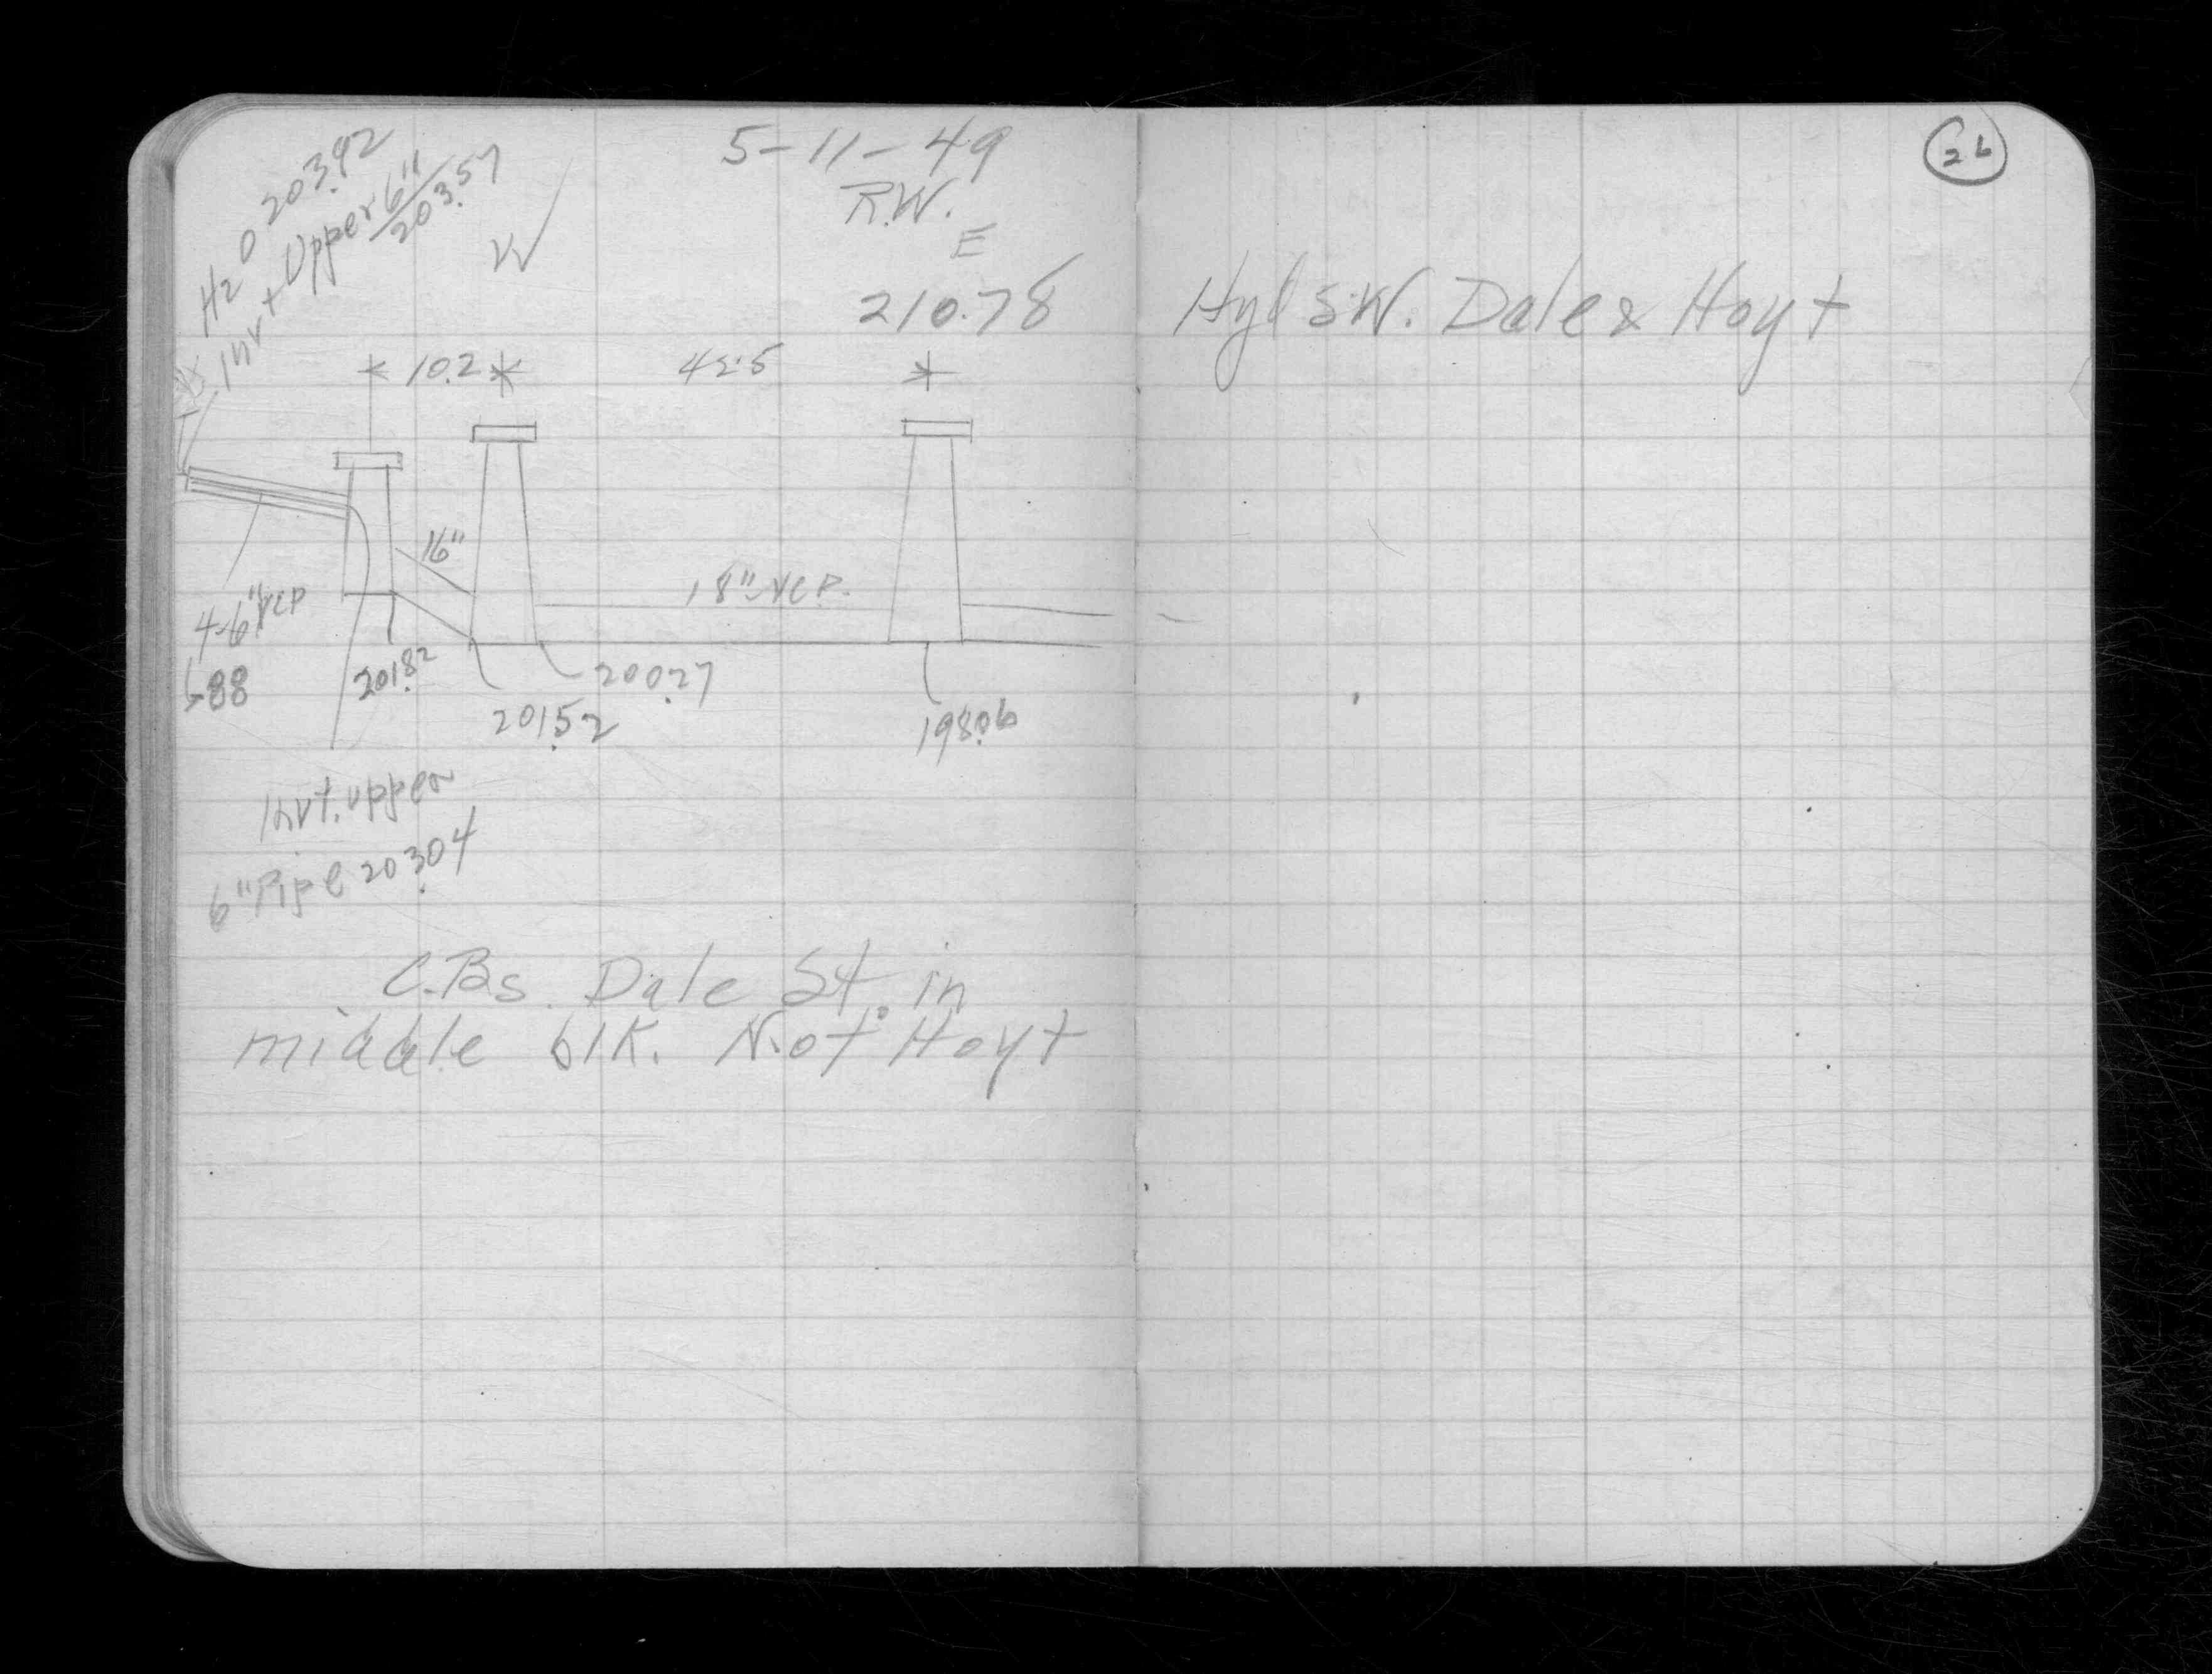 5-11-49
R.W.
H2O 203.92
Invt Upper 6"
203.57
W
E
210.78
10.2
42.5
16"
18" VCP.
4-6" VCP
88
201.82
200.27
201.52
198.06
Invt. upper
6" Pipe 203.04
C.Bs. Dale St. in
middle blk. N. of Hoyt
26
Hyd S.W. Dale & Hoyt